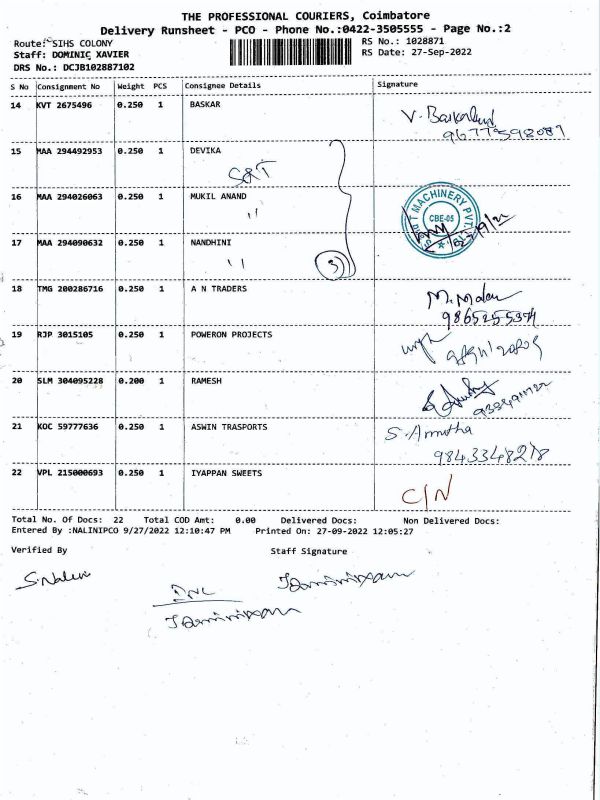 THE PROFESSIONAL COURIERS, Coimbatore
Delivery Runsheet - PCO - Phone No.:0422-3505555 - Page No.:2
Route: SIHS COLONY RS No.: 1028871
Staff: DOMINIC XAVIER RS Date: 27-Sep-2022
DRS No.: DCJB102887102
S No Consignment No Weight PCS Consignee Details Signature
14 KVT 2675496 0.250 1 BASKAR
15 MAA 294492953 0.250 1 DEVIKA
S&T
16 MAA 294026063 0.250 1 MUKIL ANAND
"
MACHINERY PVT.
CBE-05
17 MAA 294090632 0.250 1 NANDHINI
"
3
18 TMG 200286716 0.250 1 A N TRADERS
19 RJP 3015105 0.250 1 POWERON PROJECTS
20 SLM 304095228 0.200 1 RAMESH
21 KOC 59777636 0.250 1 ASWIN TRASPORTS S. Amutha
22 VPL 215000693 0.250 1 IYAPPAN SWEETS
C/N
Total No. Of Docs: 22 Total COD Amt: 0.00 Delivered Docs: Non Delivered Docs:
Entered By :NALINIPCO 9/27/2022 12:10:47 PM Printed On: 27-09-2022 12:05:27
Verified By Staff Signature